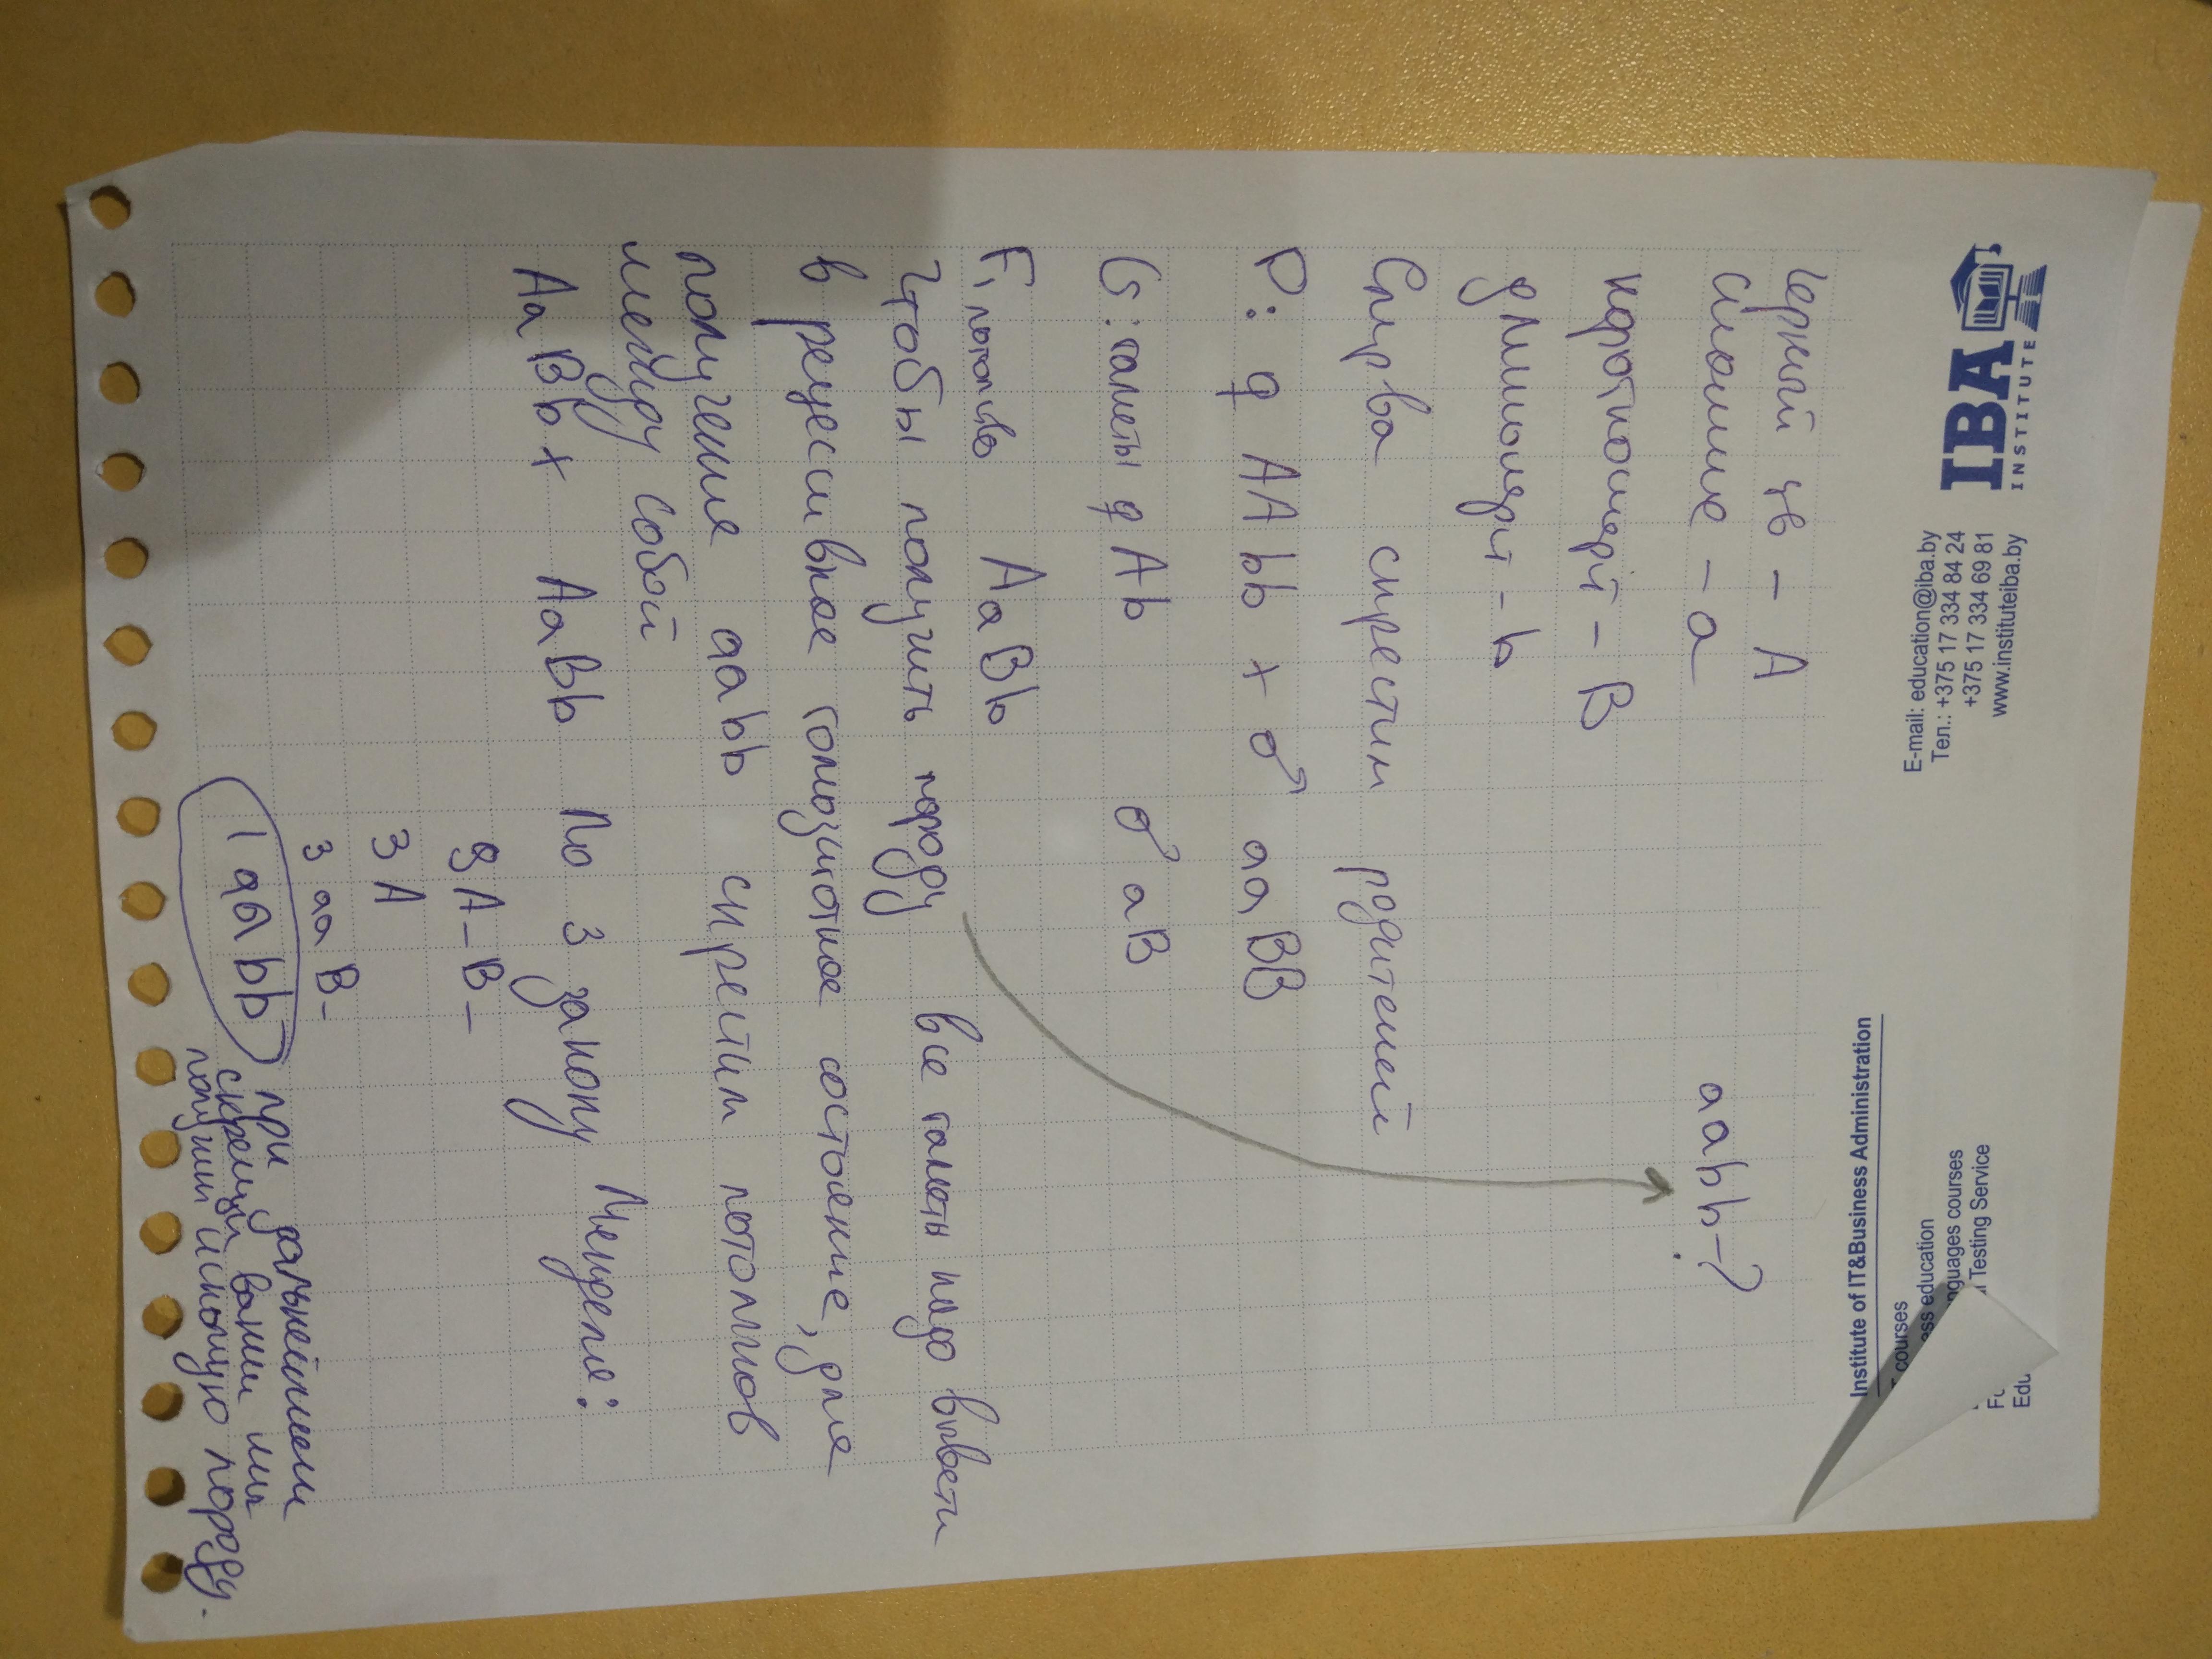 IBA
INSTITUTE
E-mail: education@iba.by
Тел.: +375 17 334 84 24
+375 17 334 69 81
www.instituteiba.by
Institute of IT&Business Administration
courses
ess education
nguages courses
Testing Service
Edu
Черный цв - A
сиамские - a
aabb-?
короткошерст - B
длинношерст - b
Сперва скрестим родителей
P: ♀ AAbb x ♂ aaBB
G: гаметы ♀ Ab ♂ aB
F1 потомство AaBb
Чтобы получить породу все гаметы надо вывести
в рецессивное гомозиготное состояние, для
получения aabb скрестим потомков
между собой
AaBb x AaBb По 3 закону Менделя:
9 A-B-
3 A
3 aaB-
1 aabb при дальнейшем
скрещивании мы
получим искомую породу.